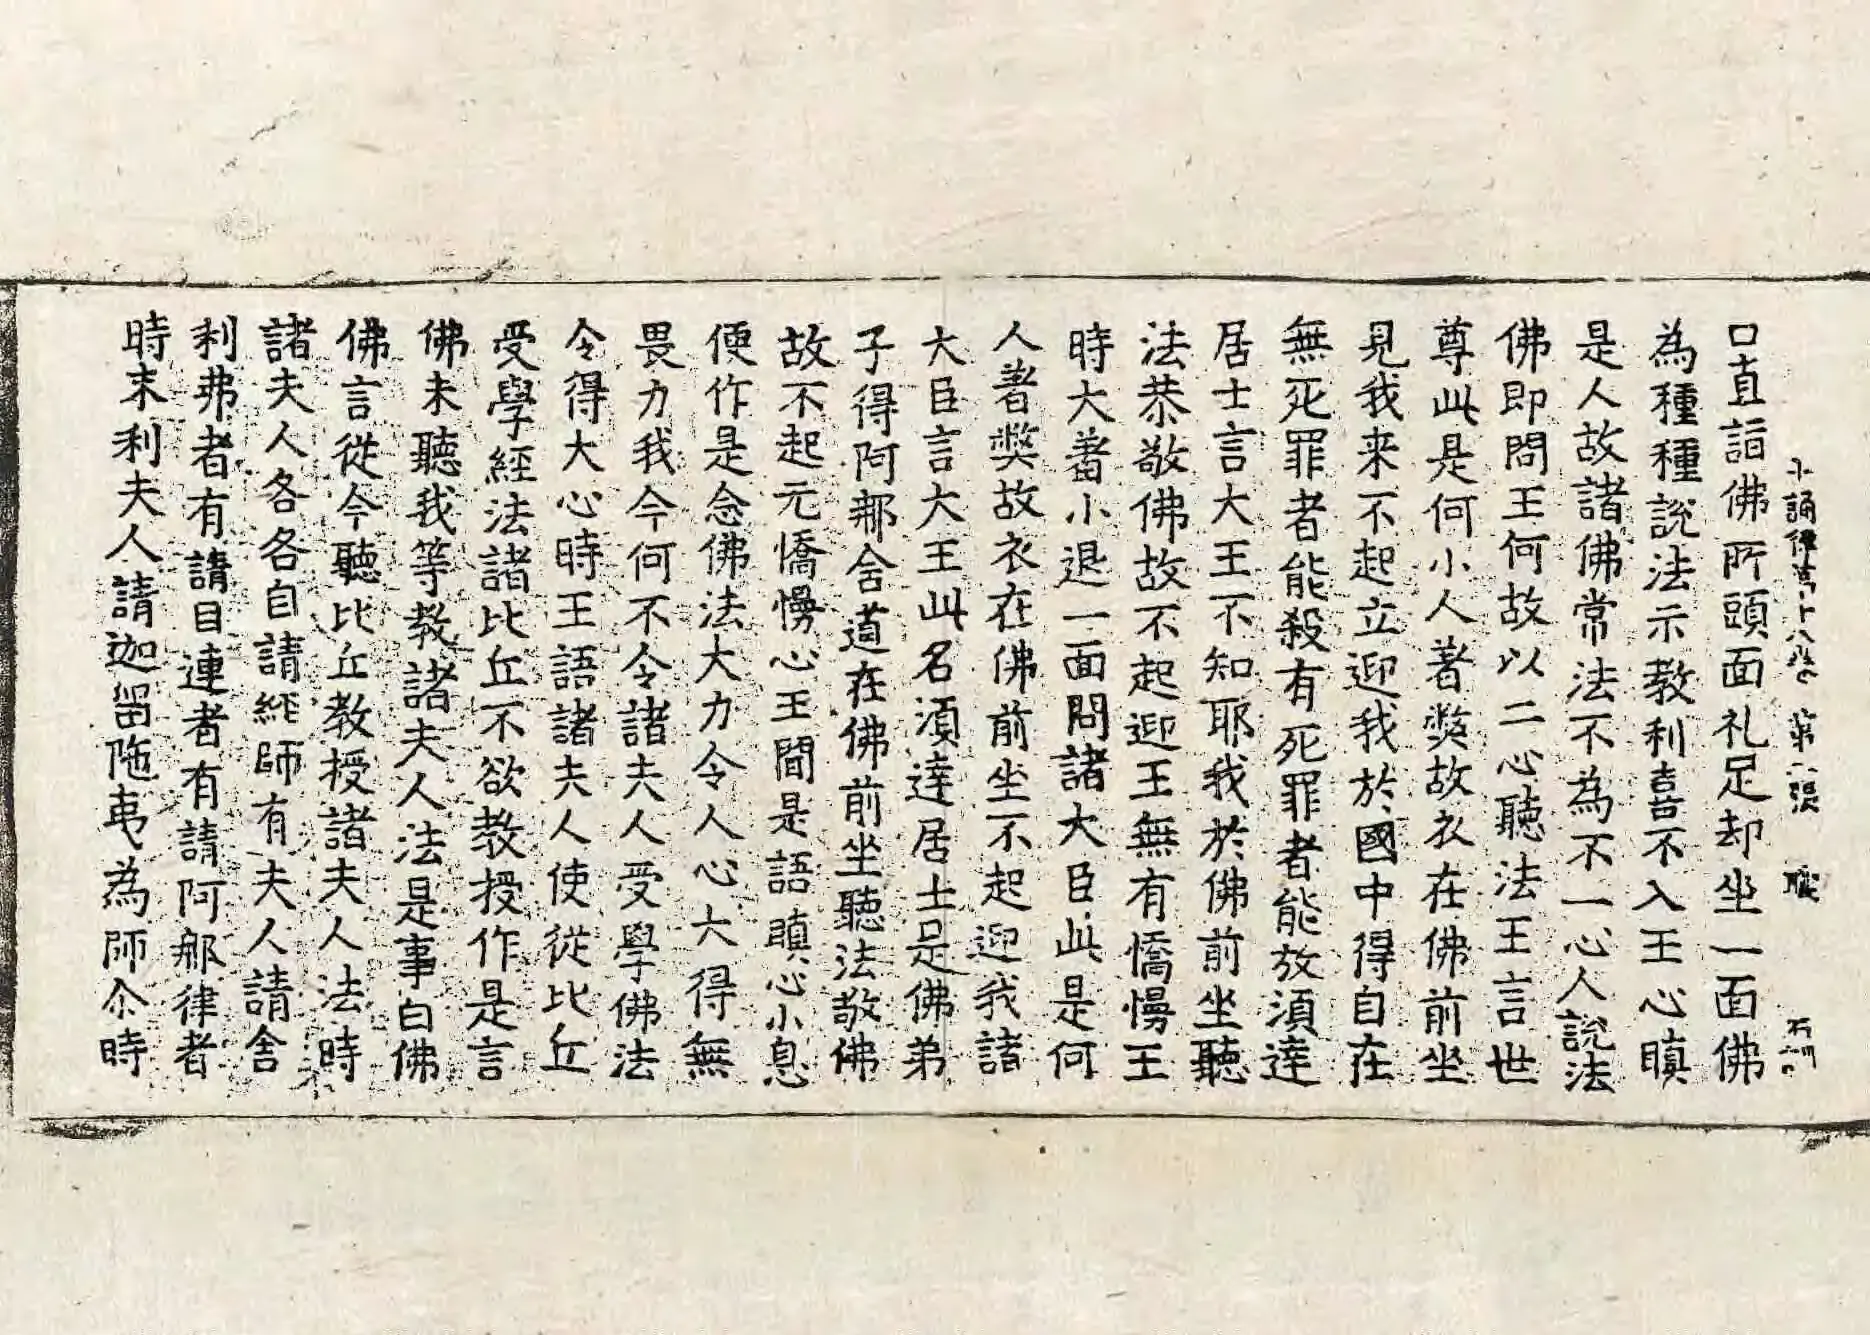 十誦律第十八卷 第二張 職
口直詣佛所頭面礼足却坐一面佛
為種種說法示教利喜不入王心瞋
是人故諸佛常法不為不一心人說法
佛即問王何故以二心聽法王言世
尊此是何小人著弊故衣在佛前坐
見我来不起立迎我於國中得自在
無死罪者能殺有死罪者能放須達
居士言大王不知耶我於佛前坐聽
法恭敬佛故不起迎王無有憍慢王
時大羞小退一面問諸大臣此是何
人著弊故衣在佛前坐不起迎我諸
大臣言大王此名須達居士是佛弟
子得阿那含道在佛前坐聽法敬佛
故不起元憍慢心王聞是語瞋心小息
便作是念佛法大力令人心大得無
畏力我今何不令諸夫人受學佛法
令得大心時王語諸夫人使從比丘
受學經法諸比丘不欲教授作是言
佛未聽我等教諸夫人法是事白佛
佛言從今聽比丘教授諸夫人法時
諸夫人各各自請經師有夫人請舍
利弗者有請目連者有請阿那律者
時末利夫人請迦留陁夷為師尒時